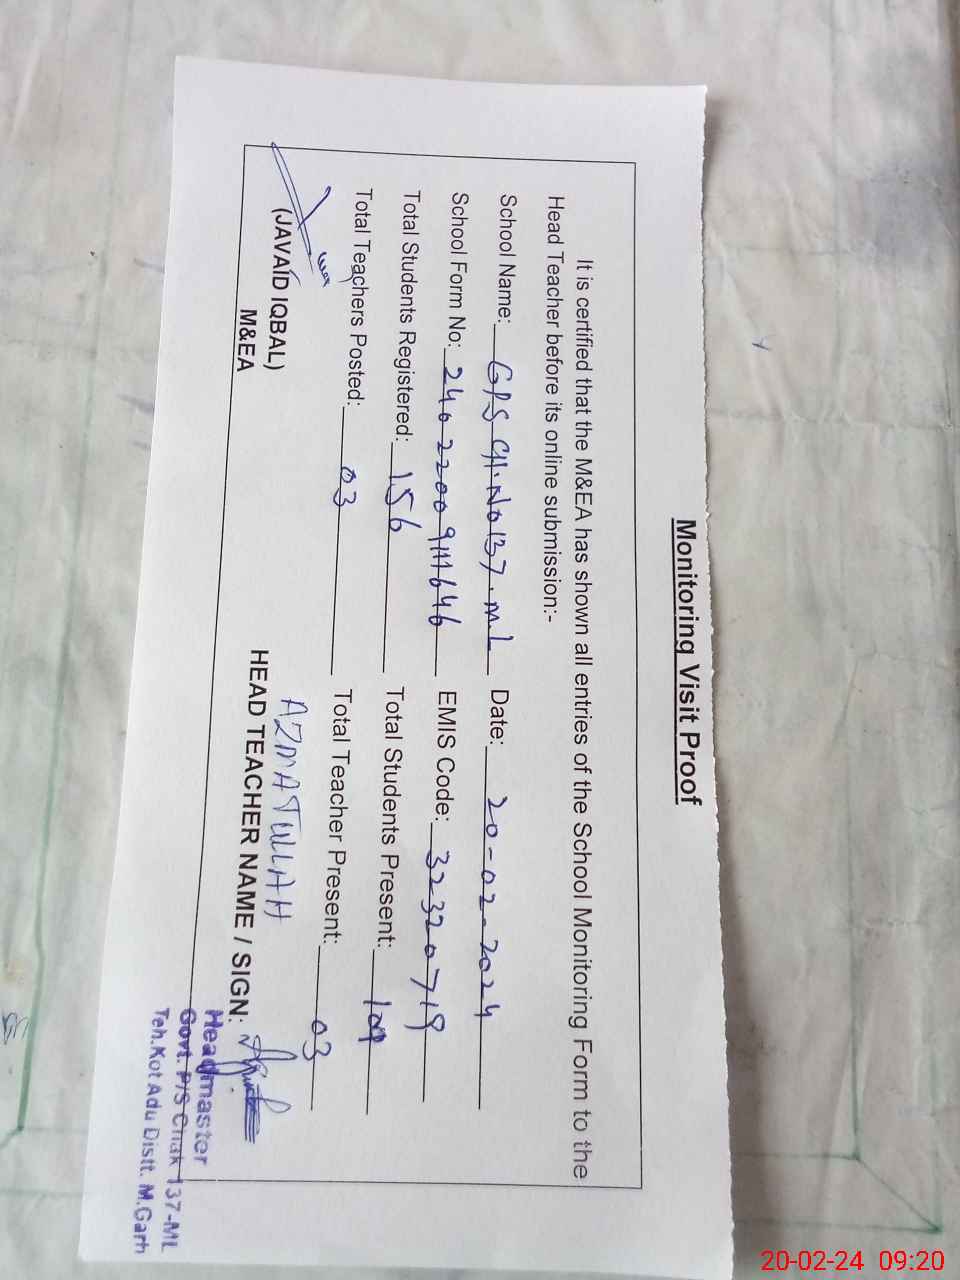 Monitoring Visit Proof
It is certified that the M&EA has shown all entries of the School Monitoring Form to the
Head Teacher before its online submission:-
School Name: GPS CH.No 137.M.L Date: 20-02-2024
School Form No: 24022009111646 EMIS Code: 32320719
Total Students Registered: 156 Total Students Present: 109
Total Teachers Posted: 03 Total Teacher Present: 03
AZMATULLAH
(JAVAID IQBAL) HEAD TEACHER NAME / SIGN:
M&EA
Headmaster
Govt. P/S Chak 137-ML
Teh.Kot Adu Distt. M.Garh
20-02-24 09:20